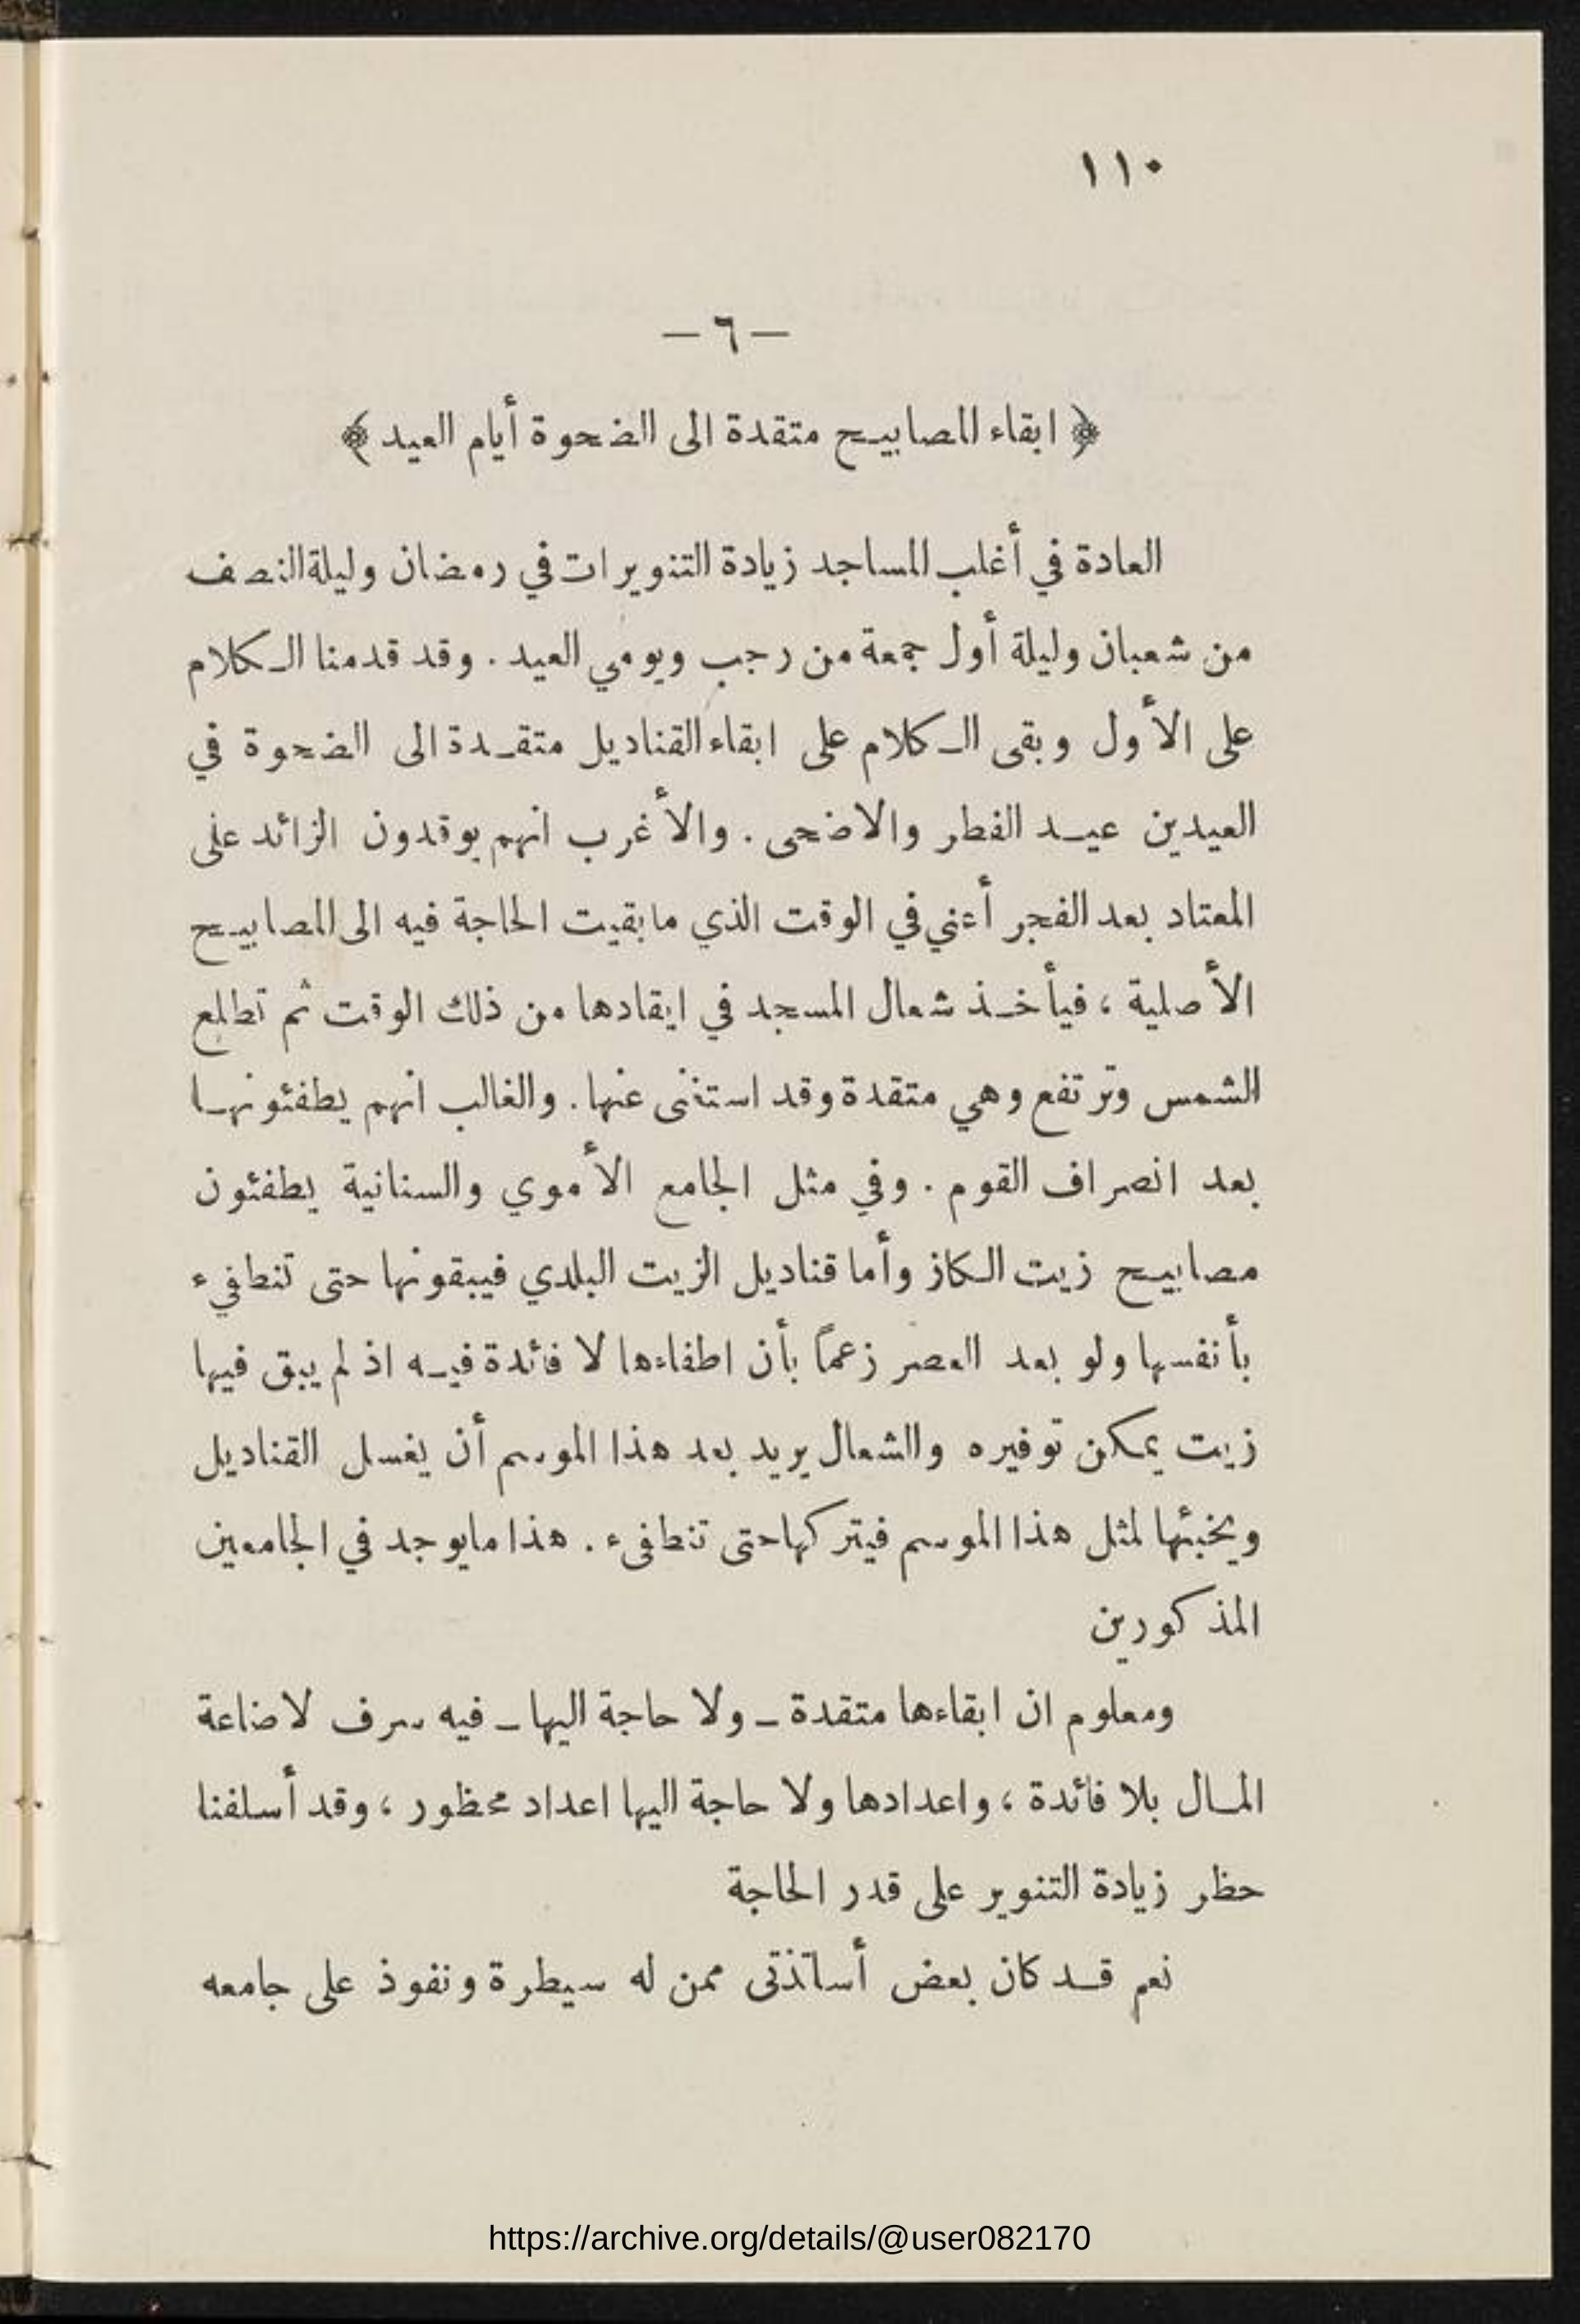 ١١٠
— ٦ —
﴿ ابقاء المصابيح متقدة الى الضحوة أيام العيد ﴾
العادة في أغلب المساجد زيادة التنويرات في رمضان وليلة النصف
من شعبان وليلة أول جمعة من رجب ويومي العيد . وقد قدمنا الكلام
على الأول وبقى الكلام على ابقاء القناديل متقدة الى الضحوة في
العيدين عيد الفطر والاضحى . والأغرب انهم يوقدون الزائد على
المعتاد بعد الفجر أعني في الوقت الذي ما بقيت الحاجة فيه الى المصابيح
الأصلية ، فيأخذ شعال المسجد في ايقادها من ذلك الوقت ثم تطلع
الشمس وترتفع وهي متقدة وقد استغنى عنها . والغالب انهم يطفئونها
بعد انصراف القوم . وفي مثل الجامع الأموي والسنانية يطفئون
مصابيح زيت الكاز وأما قناديل الزيت البلدي فيبقونها حتى تنطفيء
بأنفسها ولو بعد العصر زعماً بأن اطفاءها لا فائدة فيه اذ لم يبق فيها
زيت يمكن توفيره والشعال يريد بعد هذا الموسم أن يغسل القناديل
ويخبئها لمثل هذا الموسم فيتركها حتى تنطفىء . هذا مايوجد في الجامعين
المذكورين
ومعلوم ان ابقاءها متقدة ــ ولا حاجة اليها ــ فيه سرف لاضاعة
المال بلا فائدة ، واعدادها ولا حاجة اليها اعداد محظور ، وقد أسلفنا
حظر زيادة التنوير على قدر الحاجة
نعم قد كان بعض أساتذتى ممن له سيطرة ونفوذ على جامعه
https://archive.org/details/@user082170